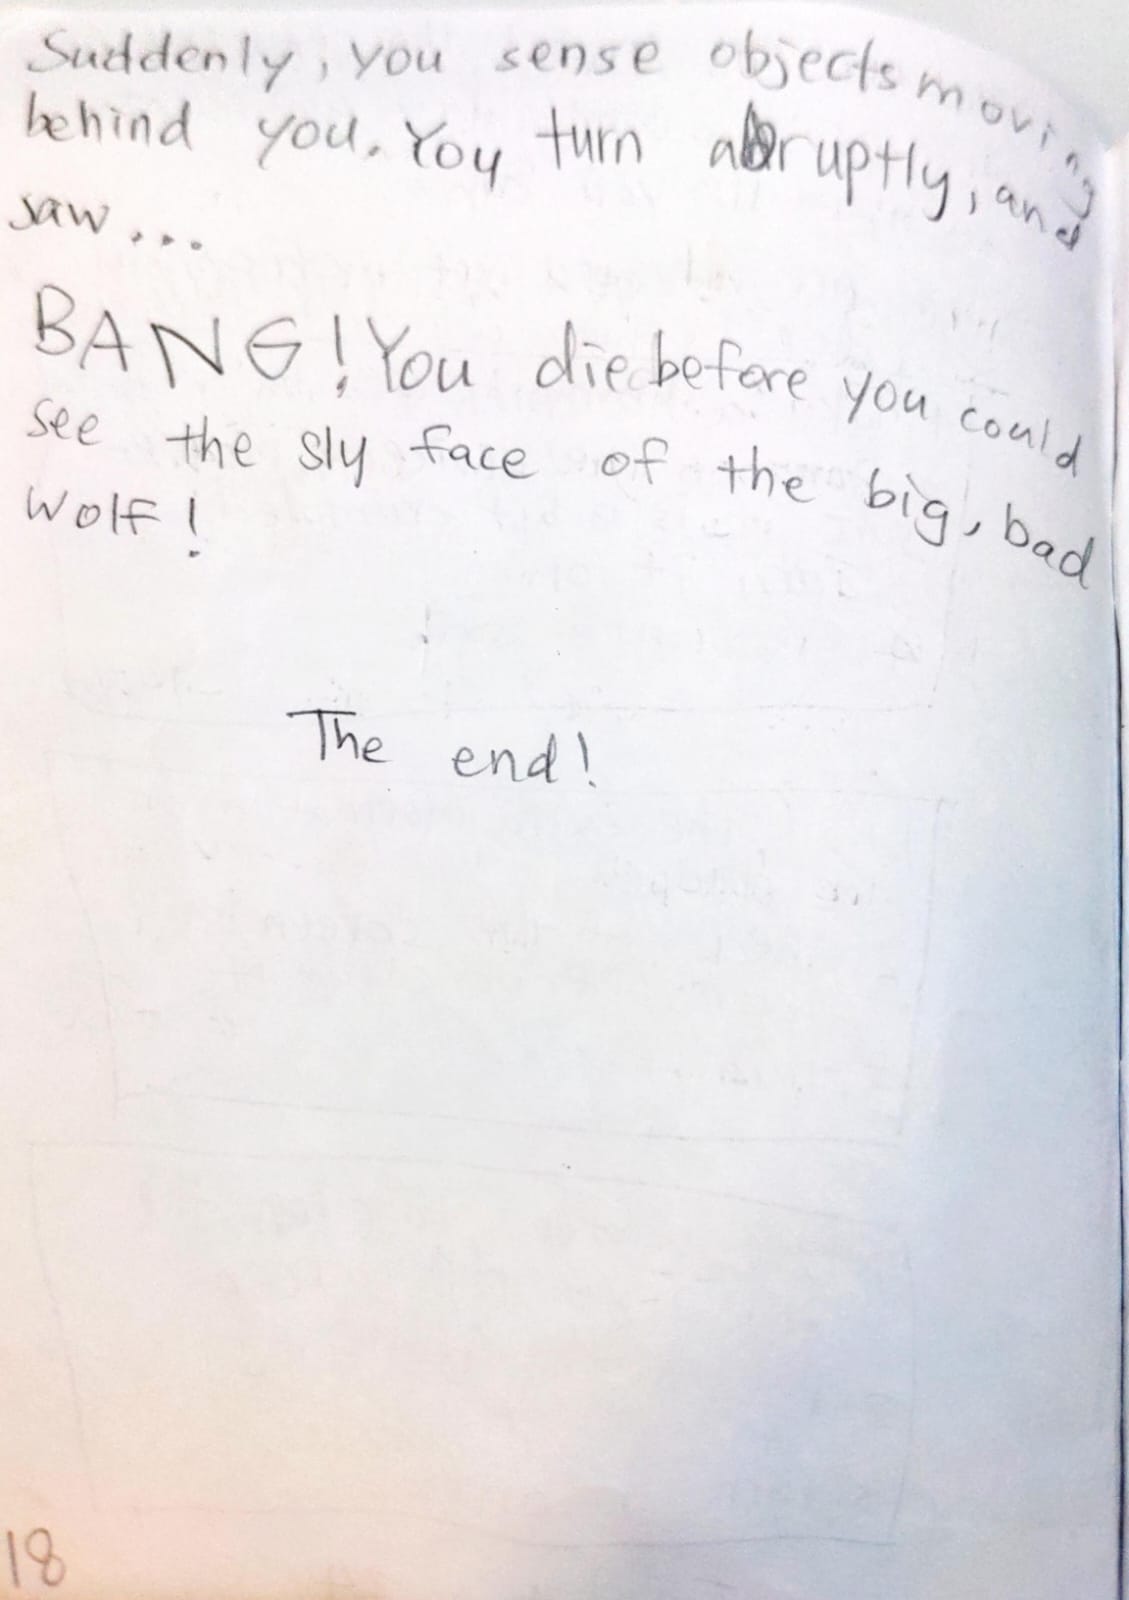 Suddenly, you sense objects moving
behind you. You turn abruptly, and
saw...
BANG! You die before you could
see the sly face of the big, bad
wolf!
The end!
18